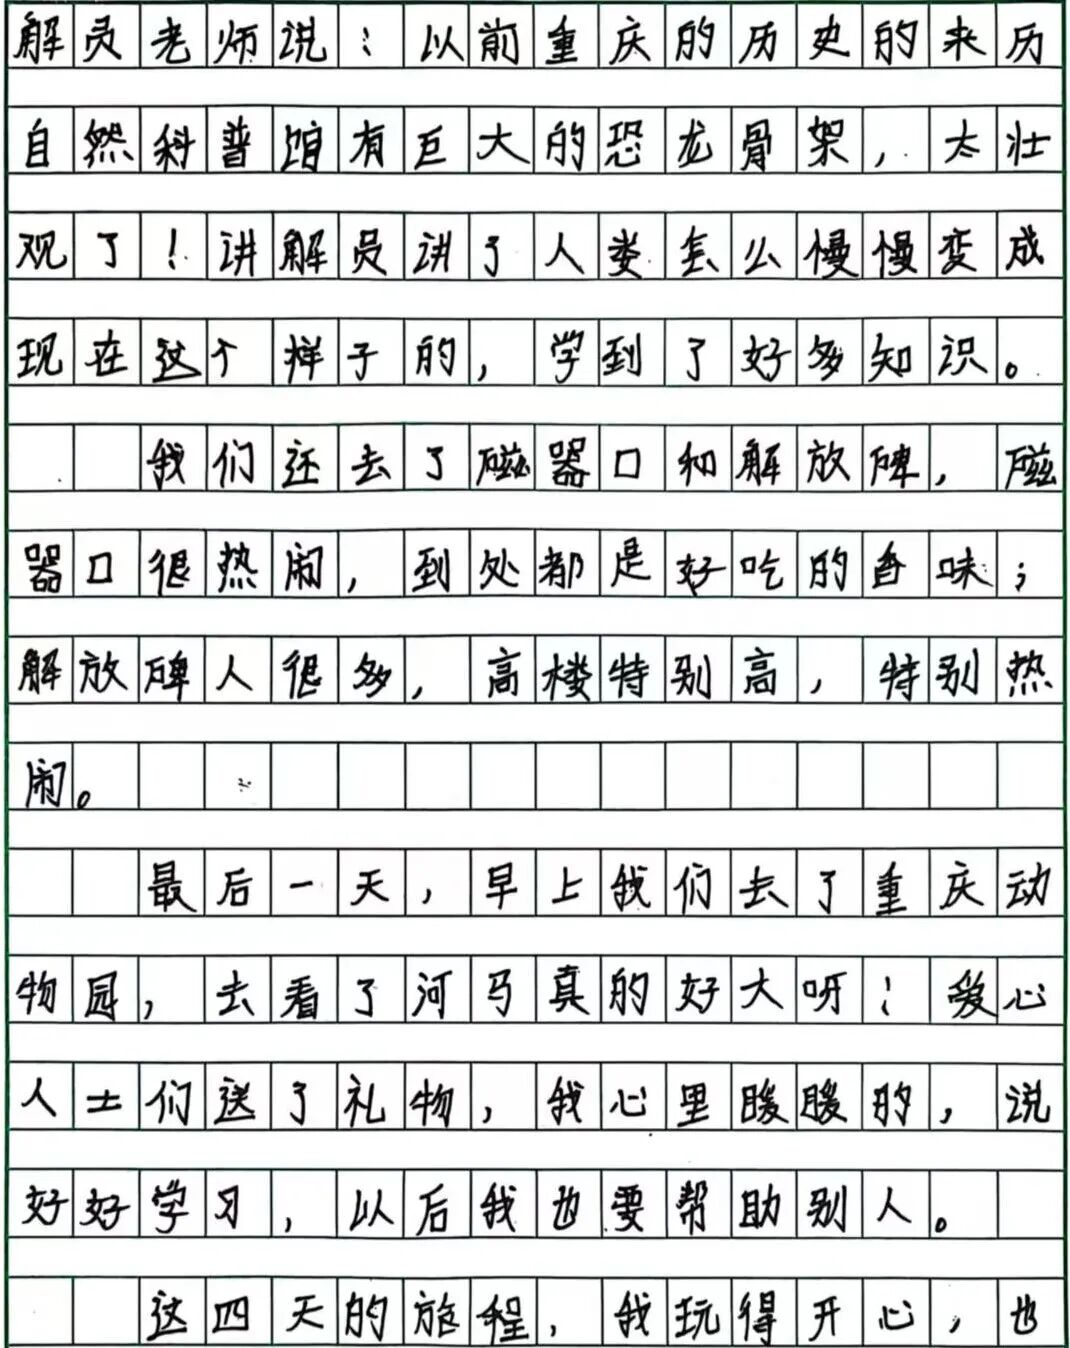 解员老师说：以前重庆的历史的来历
自然科普馆有巨大的恐龙骨架，太壮
观了！讲解员讲了人类怎么慢慢变成
现在这个样子的，学到了好多知识。
我们还去了磁器口和解放碑，磁
器口很热闹，到处都是好吃的香味；
解放碑人很多，高楼特别高，特别热
闹。
最后一天，早上我们去了重庆动
物园，去看了河马真的好大呀！爱心
人士们送了礼物，我心里暖暖的，说
好好学习，以后我也要帮助别人。
这四天的旅程，我玩得开心，也